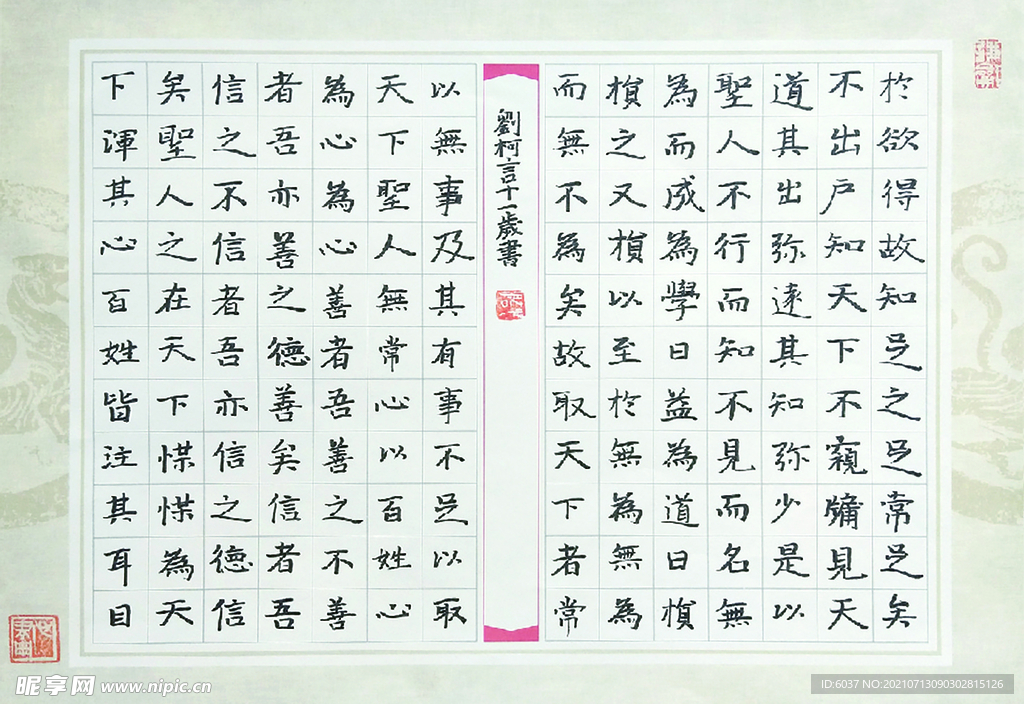 於欲得故知足之足常足矣
不出戶知天下不窺牖見天
道其出弥遠其知弥少是以
聖人不行而知不見而名無
為而成為學日益為道日損
損之又損以至於無為無為
而無不為矣故取天下者常
劉柯言十一歲書
以無事及其有事不足以取
天下聖人無常心以百姓心
為心為心善者吾善之不善
者吾亦善之德善矣信者吾
信之不信者吾亦信之德信
矣聖人之在天下惵惵為天
下渾其心百姓皆注其耳目
昵享网 www.nipic.cn
ID:6037 NO:20210713090302815126